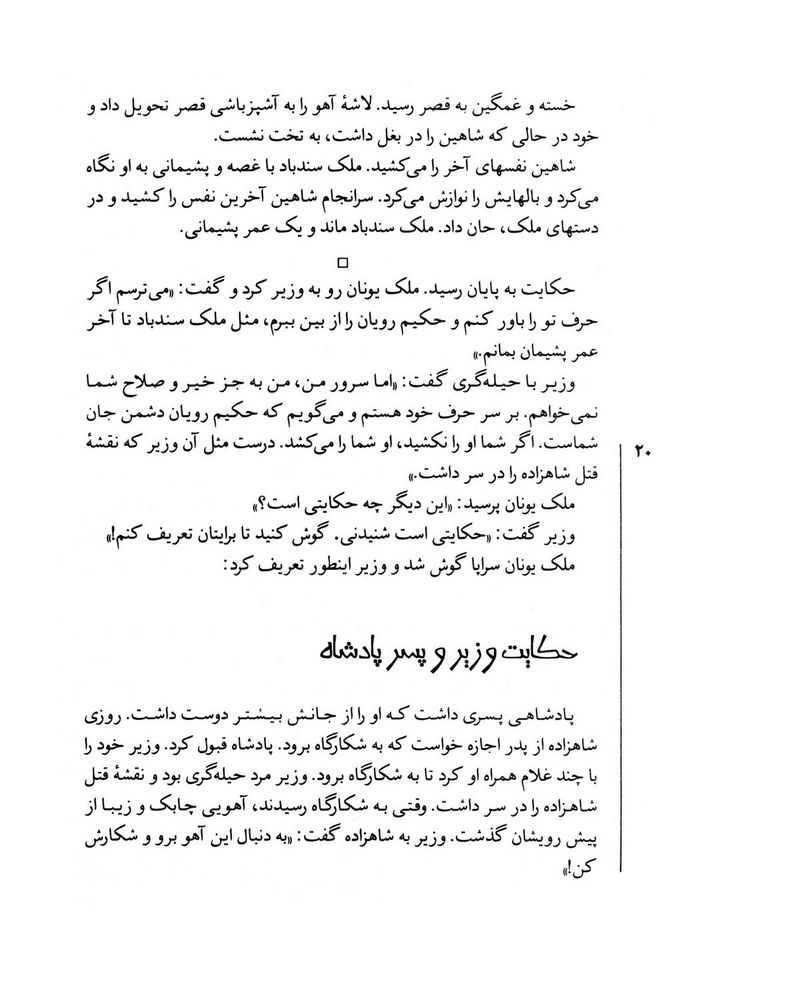 خسته و غمگین به قصر رسید. لاشهٔ آهو را به آشپزباشی قصر تحویل داد و
خود در حالی که شاهین را در بغل داشت، به تخت نشست.
شاهین نفسهای آخر را می‌کشید. ملک سندباد با غصه و پشیمانی به او نگاه
می‌کرد و بالهایش را نوازش می‌کرد. سرانجام شاهین آخرین نفس را کشید و در
دستهای ملک، حان داد. ملک سندباد ماند و یک عمر پشیمانی.
□
حکایت به پایان رسید. ملک یونان رو به وزیر کرد و گفت: «می‌ترسم اگر
حرف تو را باور کنم و حکیم رویان را از بین ببرم، مثل ملک سندباد تا آخر
عمر پشیمان بمانم.»
وزیر با حیله‌گری گفت: «اما سرور من، من به جز خیر و صلاح شما
نمی‌خواهم. بر سر حرف خود هستم و می‌گویم که حکیم رویان دشمن جان
شماست. اگر شما او را نکشید، او شما را می‌کشد. درست مثل آن وزیر که نقشهٔ
قتل شاهزاده را در سر داشت.»
۲۰
ملک یونان پرسید: «این دیگر چه حکایتی است؟»
وزیر گفت: «حکایتی است شنیدنی. گوش کنید تا برایتان تعریف کنم!»
ملک یونان سراپا گوش شد و وزیر اینطور تعریف کرد:
حکایت وزیر و پسر پادشاه
پادشاهی پسری داشت که او را از جانش بیشتر دوست داشت. روزی
شاهزاده از پدر اجازه خواست که به شکارگاه برود. پادشاه قبول کرد. وزیر خود را
با چند غلام همراه او کرد تا به شکارگاه برود. وزیر مرد حیله‌گری بود و نقشهٔ قتل
شاهزاده را در سر داشت. وقتی به شکارگاه رسیدند، آهویی چابک و زیبا از
پیش رویشان گذشت. وزیر به شاهزاده گفت: «به دنبال این آهو برو و شکارش
کن!»